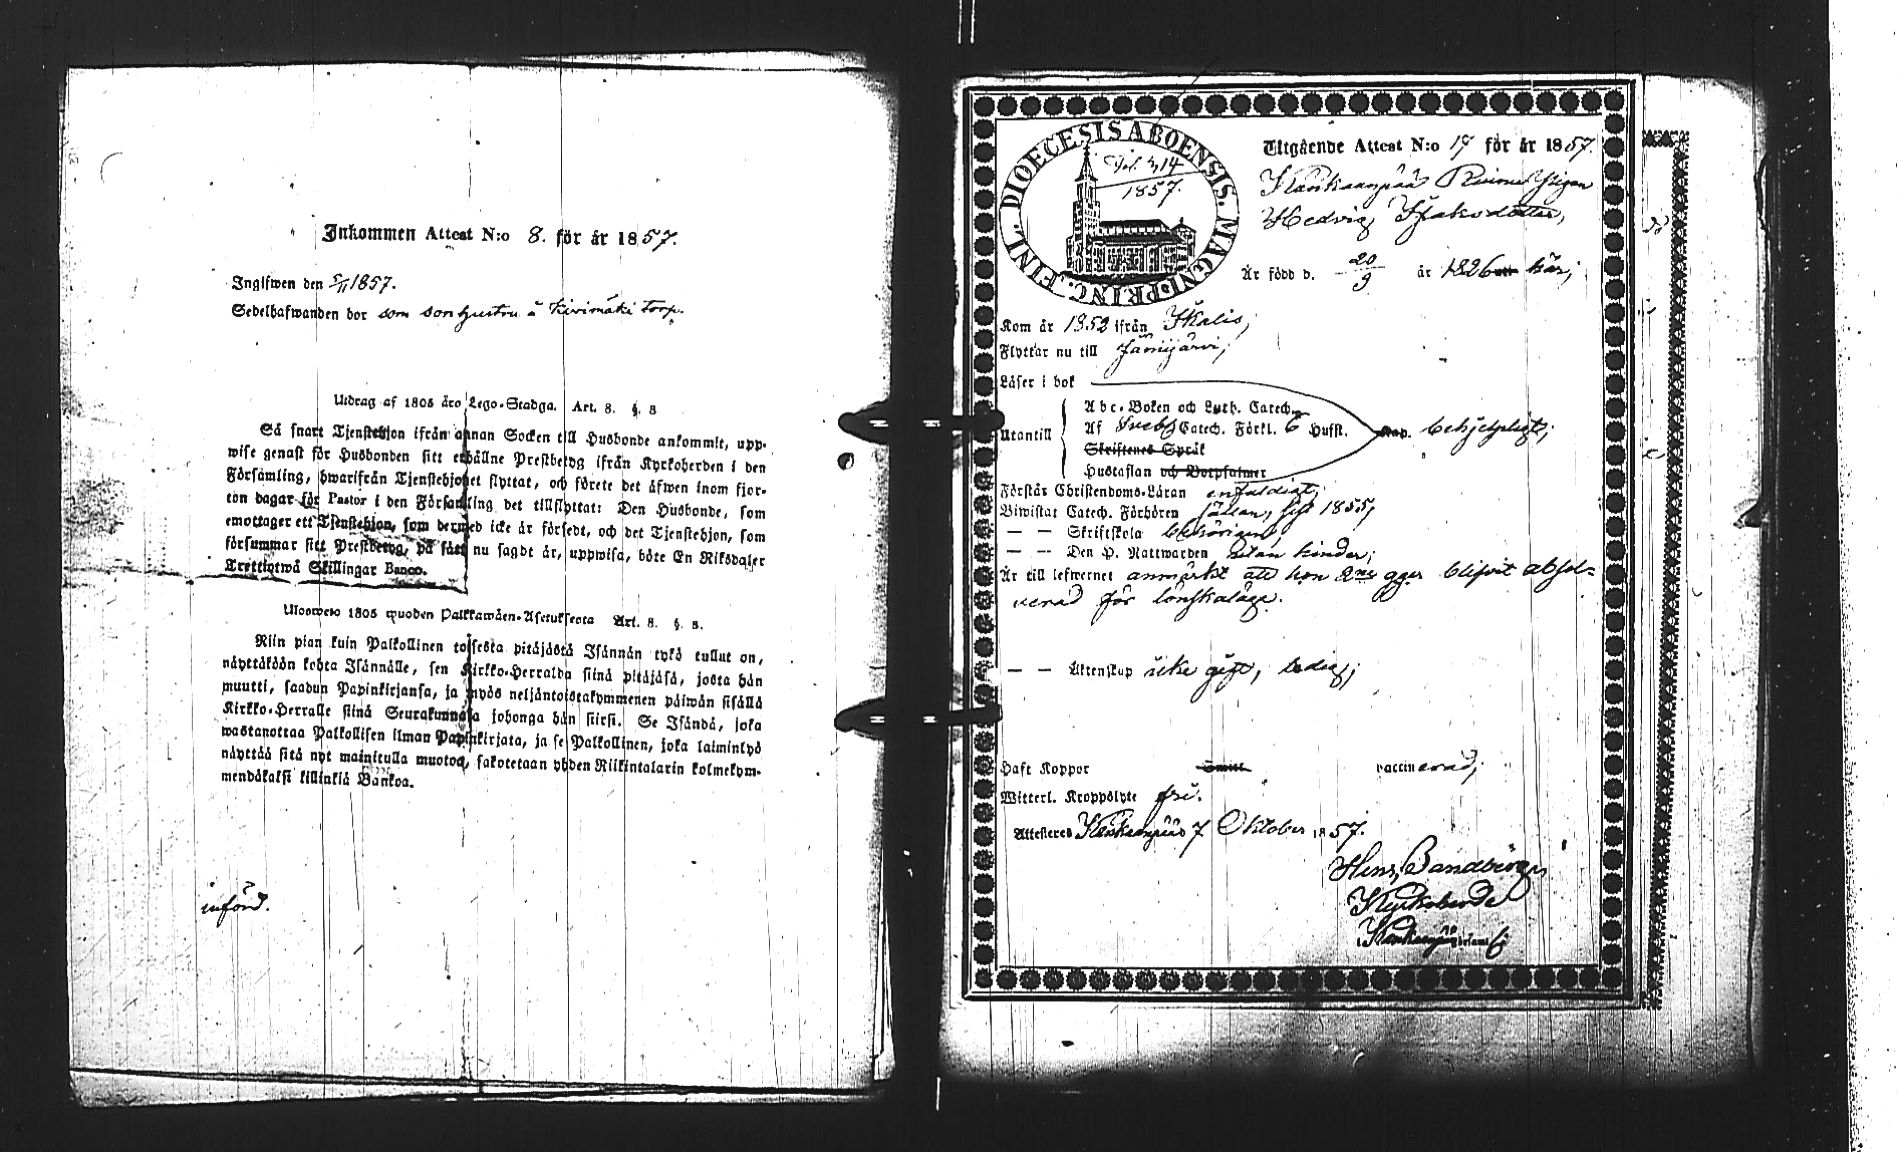 Inkommen Attest N:o 8. för år 1857.
Inglfwen den 5/11 1857.
Sedelhafwanden bor som sonhustru å Kivimäki torp.
Utdrag af 1805 års Lego-Stadga. Art. 8. §. 8
Så snart Tjenstehjon ifrån annan Socken till Husbonde ankommit, upp-
wise genast för Husbonden sitt erhållne Prestbetyg ifrån Kyrkoherden i den
Församling, hwarifrån Tjenstehjonet flyttat, och förete det äfwen inom fjor-
ton dagar för Pastor i den Församling det tillflyttat: Den Husbonde, som
emottager ett Tjenstehjon, som dermed icke är försedt, och det Tjenstehjon, som
försummar sitt Prestbetyg, på sätt nu sagdt är, uppwisa, böte En Riksdaler
Trettiotwå Skillingar Banco.
Uloswelo 1805 wuoden Palkkawäen-Asetuksesta Art. 8. §. 8.
Niin pian kuin Palkollinen toisesta pitäjästä Isännän tykö tullut on,
näyttäköön kohta Isännälle, sen Kirkko-Herralda siinä pitäjäsä, josta hän
muutti, saadun Papinkirjansa, ja myös neljäntoistakymmenen päiwän sisällä
Kirkko-Herralle siinä Seurakunnasa johonga hän siirsi. Se Isändä, joka
wastanottaa Palkollisen ilman Papinkirjata, ja se Palkollinen, joka laiminlyö
näyttää sitä nyt mainitulla muotoa, sakotetaan yhden Riikintalarin kolmekym-
mendäkaksi killinkiä Bankoa.
införd.
DIOECESIS ABOENSIS. MAGNI PRINC. FINL.
1857.
Utgående Attest N:o 19 för år 1857.
Kankaanpää Pigan
Hedvig Jakobsdotter,
Är född d. 20/9 år 1826 här;
Kom år 1852 ifrån Ikalis,
Flyttar nu till Jämijärvi;
Läser i bok
Utantill
Abc-Boken och Luth. Catech.
Af Sveb. Catech. Förkl. 6 Hufst. Kap. behjelpligt;
Skriftenes Språk
Hustaflan och Botpsalmer
Förstår Christendoms-Läran enfaldigt;
Biwistat Catech. Förhören sällan, sist 1855;
— — Skriftskola behörigen;
— — Den H. Nattwarden utan hinder;
Är till lefwernet anmärkt att hon 2ne ggr blifvit absol-
verad för lönskaläge.
— — Äktenskap icke gift, ledig;
Haft Koppor vaccinerad;
Witterl. Kroppslyte fri.
Attesteres Kankaanpää 7 Oktober 1857.
Kyrkoherde
i Kankaanpää